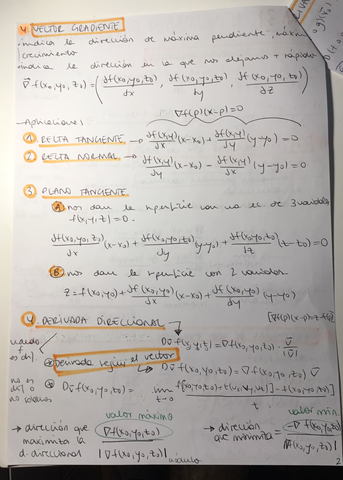 4 VECTOR GRADIENTE
·indica la dirección de máxima pendiente, máximo
crecimiento
·indica la dirección en la que nos alejamos + rápido
∇f(x₀,y₀,z₀) = (df(x₀,y₀,z₀)/dx, df(x₀,y₀,z₀)/dy, df(x₀,y₀,z₀)/dz)
∇f(p)(x-p)=0
→Aplicaciones
① RECTA TANGENTE → df(x,y)/dx (x-x₀) + df(x,y)/dy (y-y₀) = 0
② RECTA NORMAL → df(x,y)/dy (x-x₀) - df(x,y)/dx (y-y₀) = 0
③ PLANO TANGENTE
Ⓐ nos dan la superficie con una ec de 3 variables
f(x,y,z)=0.
df(x₀,y₀,z₀)/dx (x-x₀) + df(x₀,y₀,z₀)/dy (y-y₀) + df(x₀,y₀,z₀)/dz (z-z₀) = 0
Ⓑ nos dan la superficie con 2 variables
z = f(x₀,y₀) + df(x₀,y₀)/dx (x-x₀) + df(x₀,y₀)/dy (y-y₀)
④ DERIVADA DIRECCIONAL
Dv f(x,y,z) = ∇f(x₀,y₀,z₀) · v/|v|
cuando
es df
Derivada según el vector
Dv f(x₀,y₀,z₀) = ∇f(x₀,y₀,z₀) v
no es
df o
no sabemos
Dv f(x₀,y₀,z₀) = lim t→0 f[(x₀,y₀,z₀)+t(v₁,v₂,v₃)] - f(x₀,y₀,z₀) / t
valor máximo
valor mín
→ dirección que
maximiza la
d. direccional
∇f(x₀,y₀,z₀)
|∇f(x₀,y₀,z₀)| módulo
→ dirección
que minimita
-∇f(x₀,y₀,z₀)
|∇f(x₀,y₀,z₀)|
2